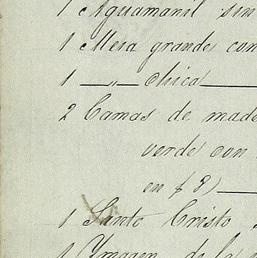 1 Aguamanil sin
1 Mesa grande con
1 —„— chica
2 Camas de made
verde con
en $ 8)
1 Santo Cristo
1 Ymagen de la